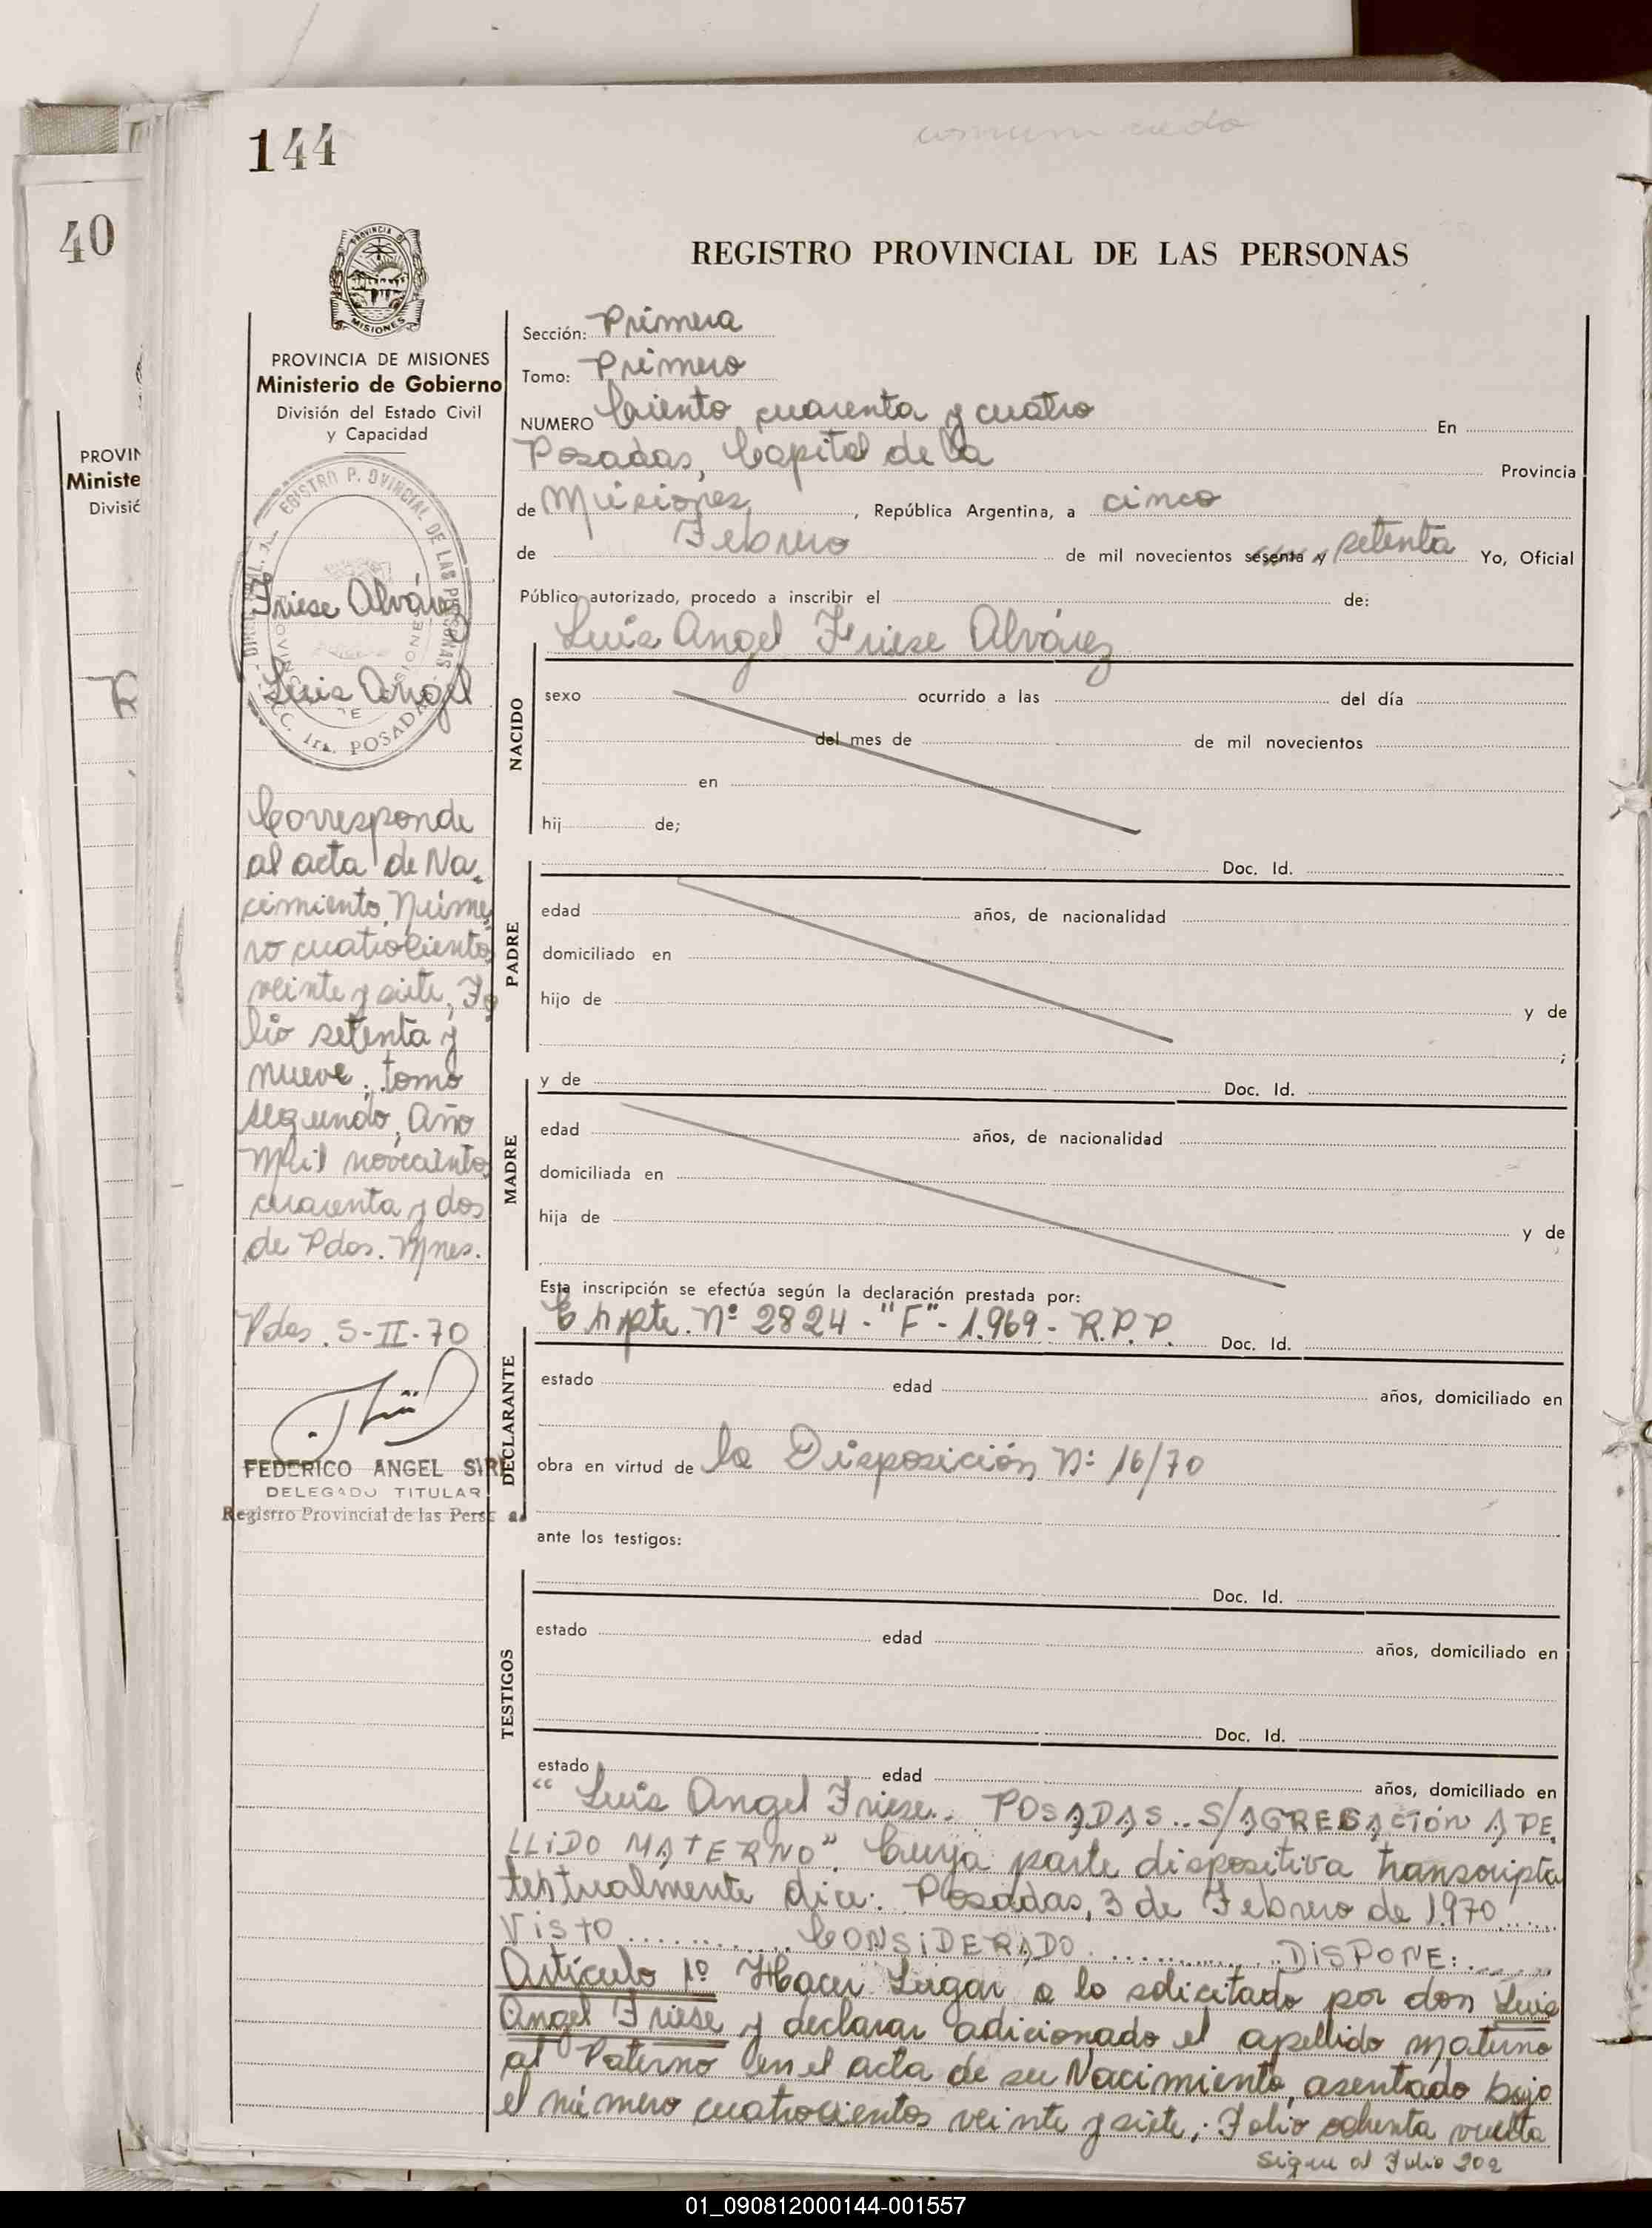 comunicado
144
40
REGISTRO PROVINCIAL DE LAS PERSONAS
MISIONES
PROVINCIA DE MISIONES
Ministerio de Gobierno
División del Estado Civil
y Capacidad
PROVIN
Ministe
Divisió
Friese Alvárez
Luis Angel
Corresponde
al acta de Na-
cimiento Núme-
ro cuatrocientos
veinte y siete, Fo-
lio setenta y
nueve, tomo
segundo, Año
Mil novecientos
cuarenta y dos
de Pdas. Mnes.
Pdas. 5-II-70
FEDERICO ANGEL SIRE
DELEGADO TITULAR
Registro Provincial de las Pers as
Sección: Primera
Tomo: Primero
NUMERO Ciento cuarenta y cuatro En
Posadas, Capital de la Provincia
de Misiones, República Argentina, a cinco
de Febrero de mil novecientos sesenta y setenta Yo, Oficial
Público autorizado, procedo a inscribir el de:
Luis Angel Friese Alvárez
NACIDO
sexo ocurrido a las del día
del mes de de mil novecientos
en
hij de;
Doc. Id.
PADRE
edad años, de nacionalidad
domiciliado en
hijo de y de
;
y de Doc. Id.
MADRE
edad años, de nacionalidad
domiciliada en
hija de y de
Esta inscripción se efectúa según la declaración prestada por:
Expte. Nº 2824-"F"-1.969-R.P.P. Doc. Id.
DECLARANTE
estado edad años, domiciliado en
obra en virtud de la Disposición Nº 16/70
ante los testigos:
Doc. Id.
TESTIGOS
estado edad años, domiciliado en
Doc. Id.
estado edad años, domiciliado en
"Luis Angel Friese.. POSADAS.. S/AGREGACIÓN APE-
LLIDO MATERNO". Cuya parte dispositiva transcripta
textualmente dice: Posadas, 3 de Febrero de 1.970......
VISTO............ CONSIDERADO............ DISPONE:......
Artículo 1º Hacer Lugar a lo solicitado por don Luis
Angel Friese y declarar adicionado el apellido materno
al Paterno en el acta de su Nacimiento, asentado bajo
el número cuatrocientos veinte y siete; Folio ochenta vuelta
Sigue al Folio 202
01_090812000144-001557